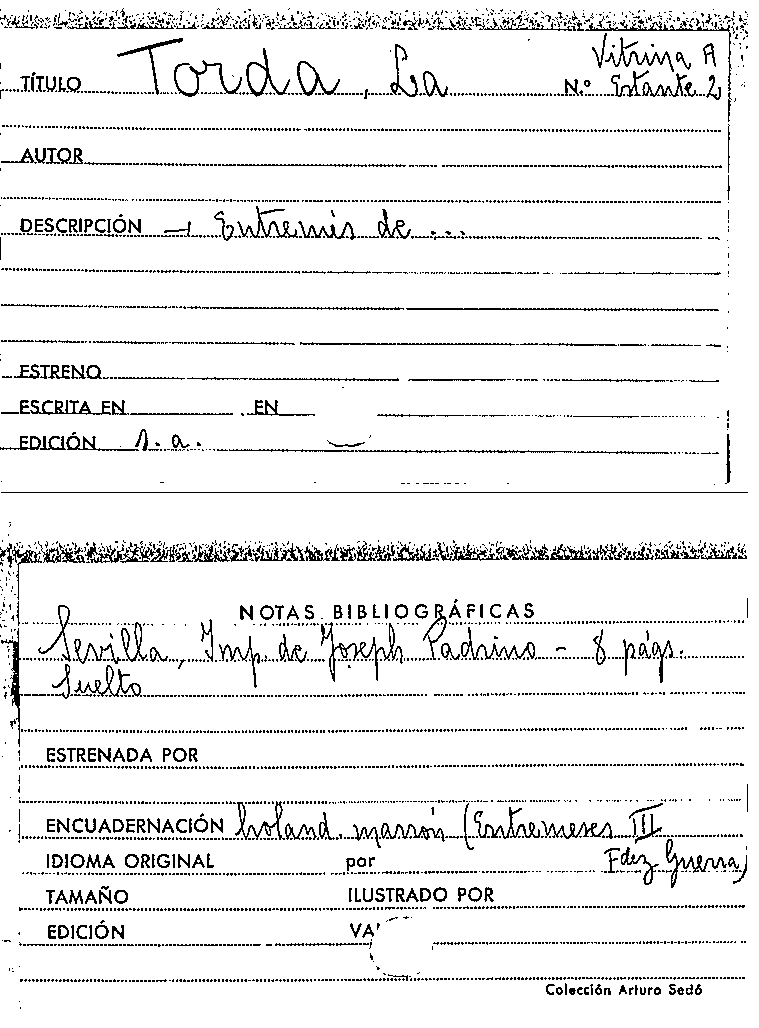 Vitrina A
TÍTULO Torda, La N.º Estante 2
AUTOR
DESCRIPCIÓN → Entremés de ...
ESTRENO
ESCRITA EN EN
EDICIÓN s.a.
NOTAS BIBLIOGRÁFICAS
Sevilla, Imp. de Joseph Padrino - 8 págs.
Suelto
ESTRENADA POR
ENCUADERNACIÓN holand. marrón (Entremeses III
IDIOMA ORIGINAL por Fdez Guerra)
TAMAÑO ILUSTRADO POR
EDICIÓN VA
Colección Arturo Sedó